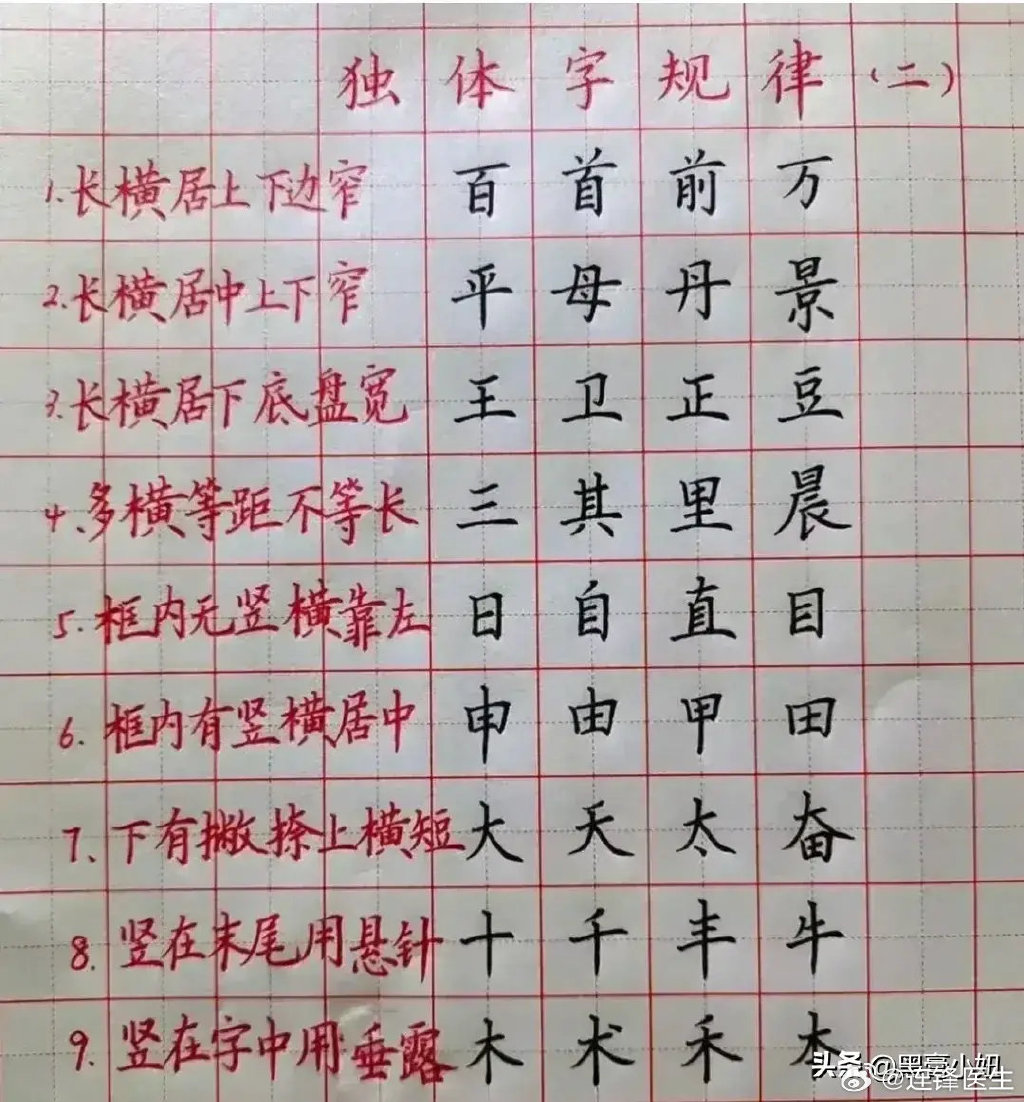 独体字规律（二）
1.长横居上下边窄 百首前万
2.长横居中上下窄 平母丹景
3.长横居下底盘宽 王卫正豆
4.多横等距不等长 三其里晨
5.框内无竖横靠左 日自直目
6.框内有竖横居中 申由甲田
7、下有撇捺上横短 大天太奋
8.竖在末尾用悬针 十千丰牛
9.竖在字中用垂露 木术禾本
头条@黑亮小妞
@连锋医生